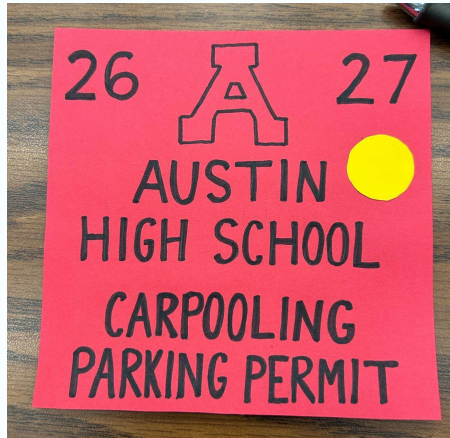 26 A 27
AUSTIN
HIGH SCHOOL
CARPOOLING
PARKING PERMIT